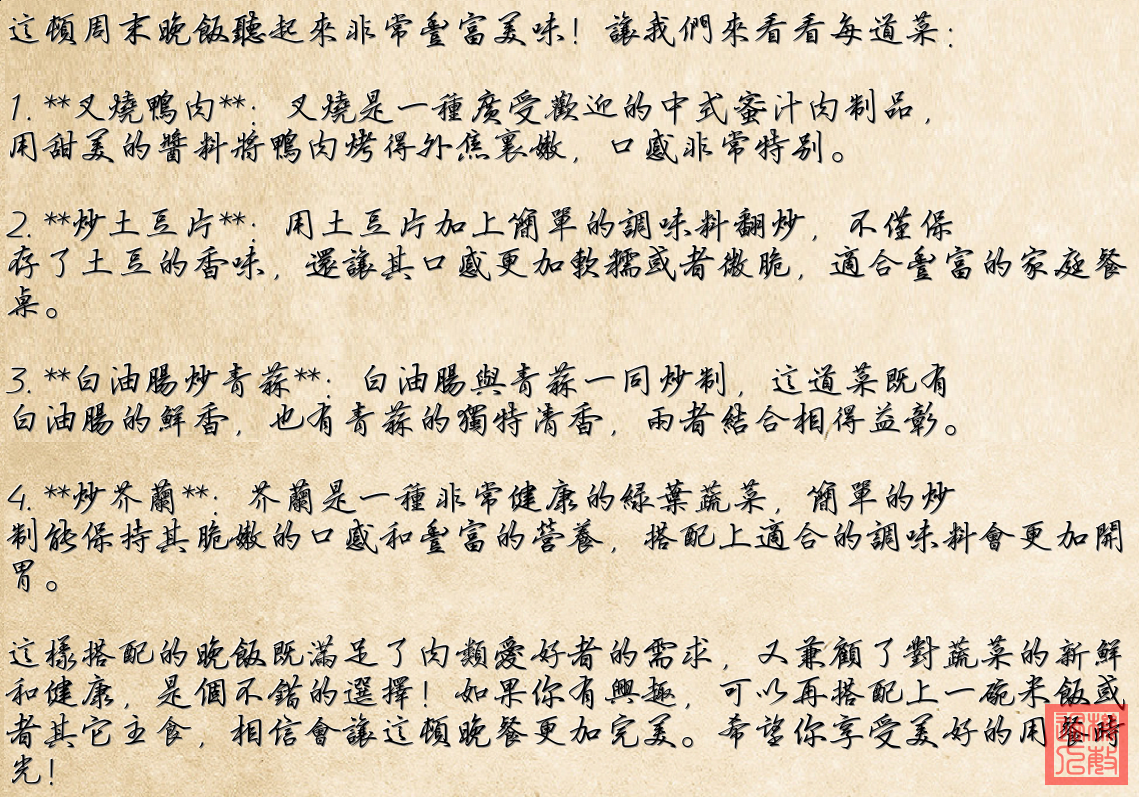 這頓周末晚飯聽起來非常豐富美味！讓我們來看看每道菜：
1. **叉燒鴨肉**：叉燒是一種廣受歡迎的中式蜜汁肉制品，
用甜美的醬料將鴨肉烤得外焦裏嫩，口感非常特別。
2. **炒土豆片**：用土豆片加上簡單的調味料翻炒，不僅保
存了土豆的香味，還讓其口感更加軟糯或者微脆，適合豐富的家庭餐
桌。
3. **白油腸炒青蒜**：白油腸與青蒜一同炒制，這道菜既有
白油腸的鮮香，也有青蒜的獨特清香，兩者結合相得益彰。
4. **炒芥蘭**：芥蘭是一種非常健康的綠葉蔬菜，簡單的炒
制能保持其脆嫩的口感和豐富的營養，搭配上適合的調味料會更加開
胃。
這樣搭配的晚飯既滿足了肉類愛好者的需求，又兼顧了對蔬菜的新鮮
和健康，是個不錯的選擇！如果你有興趣，可以再搭配上一碗米飯或
者其它主食，相信會讓這頓晚餐更加完美。希望你享受美好的用餐時
光！